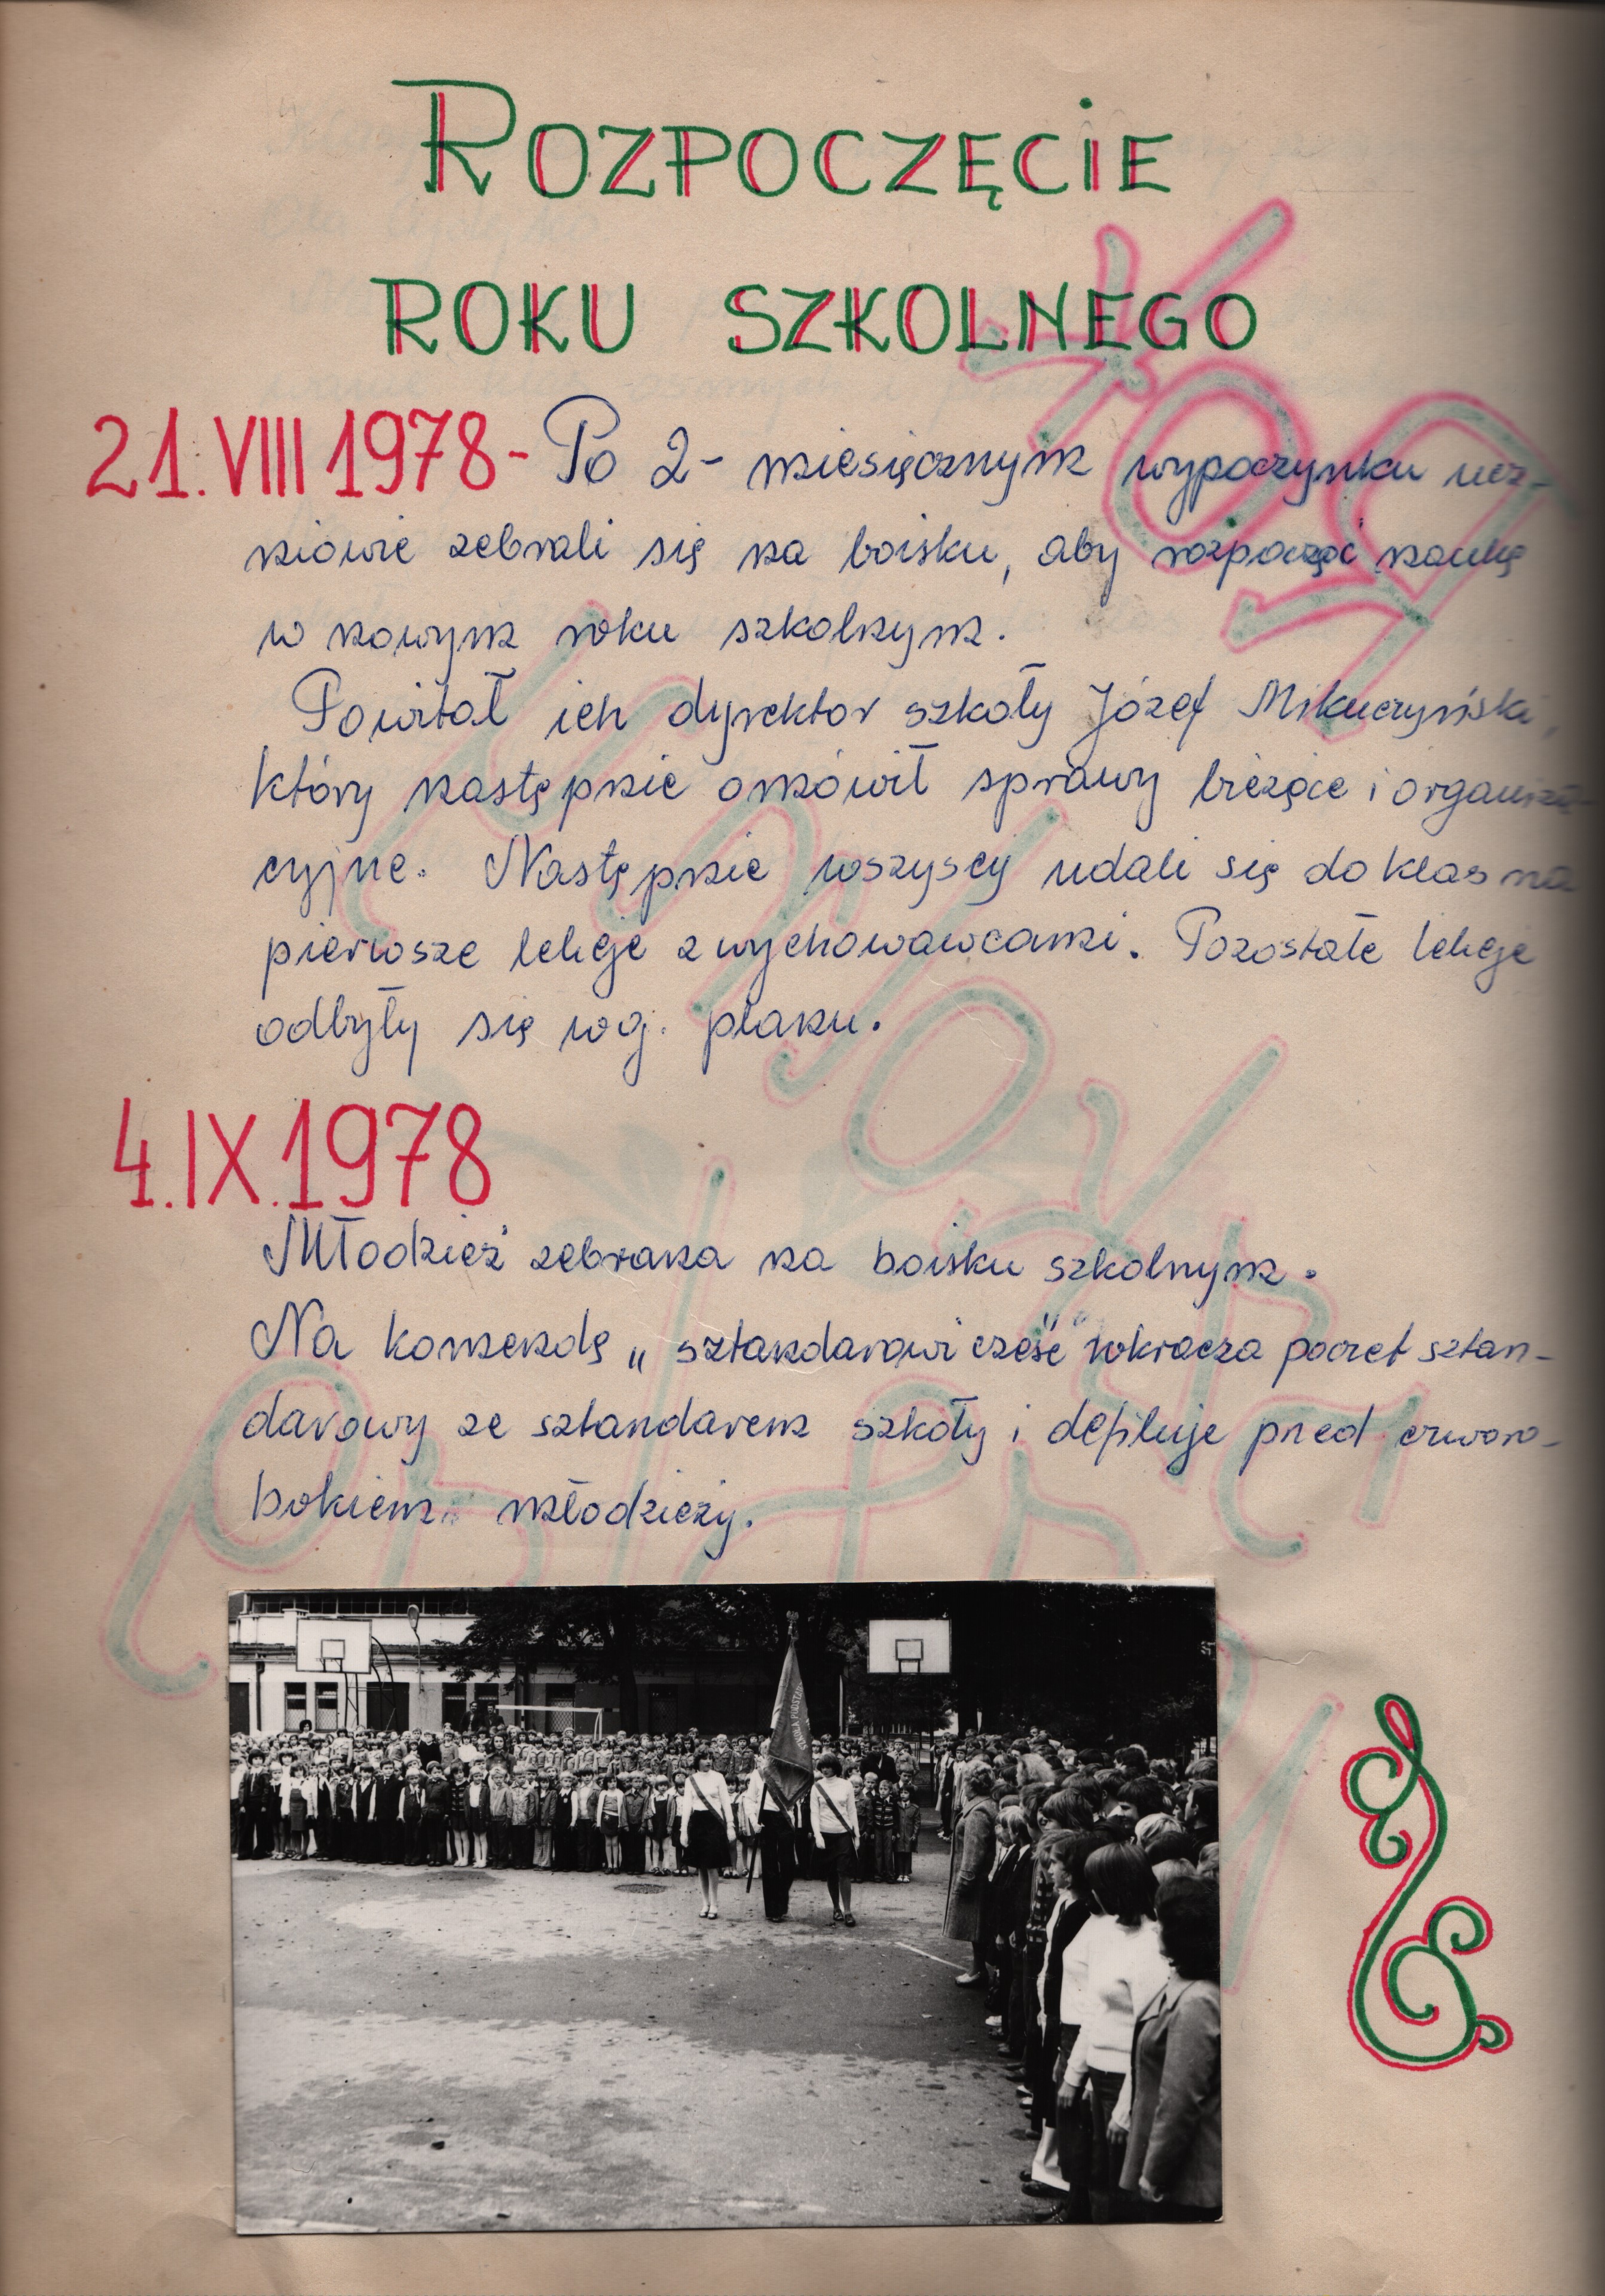 ROZPOCZĘCIE
ROKU SZKOLNEGO
21.VIII 1978- Po 2- miesięcznym wypoczynku ucz-
niowie zebrali się na boisku, aby rozpocząć naukę
w nowym roku szkolnym.
Powitał ich dyrektor szkoły Józef Mikuczyński,
który następnie omówił sprawy bieżące i organiza-
cyjne. Następnie wszyscy udali się do klas na
pierwsze lekcje z wychowawcami. Pozostałe lekcje
odbyły się wg. planu.
4.IX.1978
Młodzież zebrana na boisku szkolnym.
Na komendę „sztandarowi cześć" wkracza poczet sztan-
darowy ze sztandarem szkoły i defiluje przed czworo-
bokiem młodzieży.